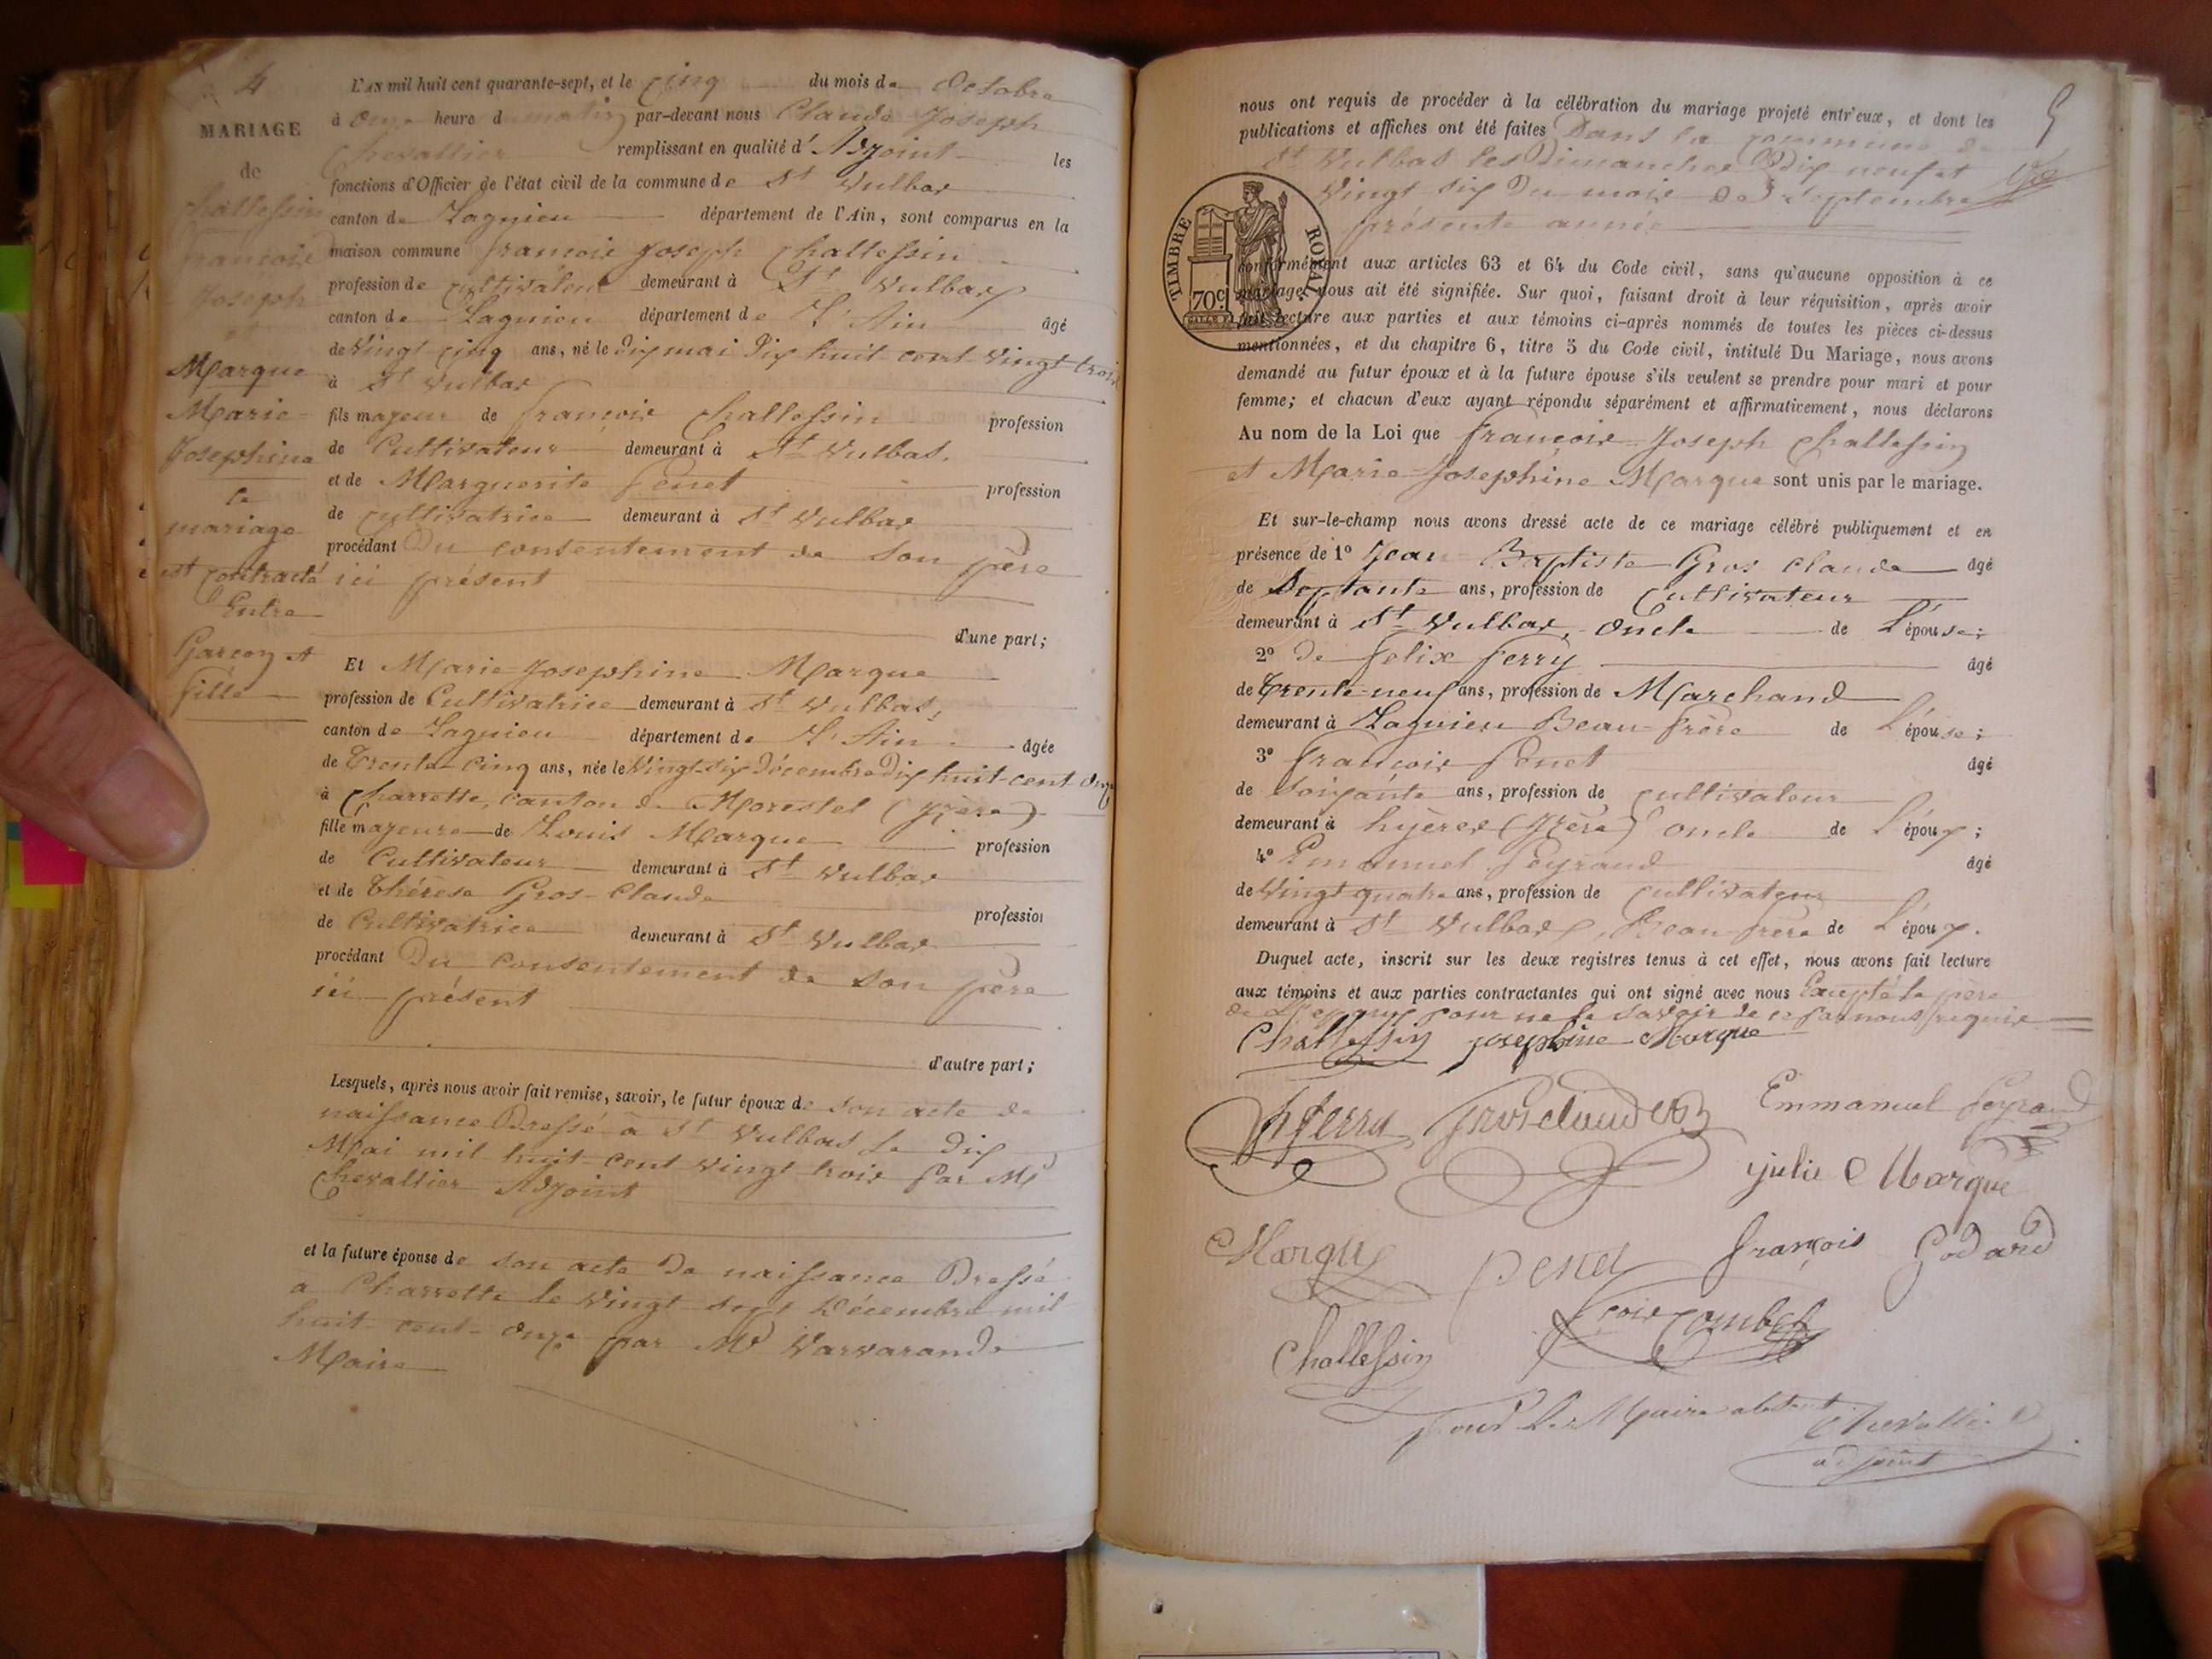 4
MARIAGE
de
Challessin
françois
Joseph
et
Marque
Marie
Josephine
le
mariage
est contracté
Entre
Garçon et
fille
L'AN mil huit cent quarante-sept, et le cinq du mois de Octobre
à onze heure du matin par-devant nous Claude Joseph
Chevallier remplissant en qualité d'Adjoint les
fonctions d'Officier de l'état civil de la commune de St Vulbas
canton de Lagnieu département de l'Ain, sont comparus en la
maison commune françois Joseph Challessin
profession de cultivateur demeurant à St Vulbas
canton de Lagnieu département de L'Ain âgé
de Vingt cinq ans, né le dix mai dix huit cent vingt trois
à St Vulbas
fils majeur de françois Challessin profession
de Cultivateur demeurant à St Vulbas.
et de Marguerite Penet profession
de cultivatrice demeurant à St Vulbas
procédant Du consentement de son père
ici présent
d'une part;
Et Marie Josephine Marque
profession de Cultivatrice demeurant à St Vulbas,
canton de Lagnieu département de L'Ain âgée
de Trente-cinq ans, née le Vingt-six Décembre dix huit-cent onze
à Charrette, canton de Morestel (Izère)
fille majeure de Louis Marque profession
de Cultivateur demeurant à St Vulbas
et de Thérèse Gros-Claude profession
de Cultivatrice demeurant à St Vulbas
procédant Du consentement de son père
ici présent
d'autre part;
Lesquels, après nous avoir fait remise, savoir, le futur époux de son acte de
naissance Dressé à St Vulbas le dix
Mai mil huit-cent vingt trois par Mr
Chevallier Adjoint
et la future épouse de son acte de naissance Dressé
a Charrette le vingt sept Décembre mil
huit-cent-onze par Mr Varvarande
Maire
5
nous ont requis de procéder à la célébration du mariage projeté entr'eux, et dont les
publications et affiches ont été faites Dans la commune de
St Vulbas les Dimanches Dix neuf et
Vingt six Du mois de Septembre
présente année
TIMBRE ROYAL
70c
conformément aux articles 63 et 64 du Code civil, sans qu'aucune opposition à ce
mariage nous ait été signifiée. Sur quoi, faisant droit à leur réquisition, après avoir
fait lecture aux parties et aux témoins ci-après nommés de toutes les pièces ci-dessus
mentionnées, et du chapitre 6, titre 5 du Code civil, intitulé Du Mariage, nous avons
demandé au futur époux et à la future épouse s'ils veulent se prendre pour mari et pour
femme; et chacun d'eux ayant répondu séparément et affirmativement, nous déclarons
Au nom de la Loi que françois Joseph Challessin
et Marie Josephine Marque sont unis par le mariage.
Et sur-le-champ nous avons dressé acte de ce mariage célébré publiquement et en
présence de 1° Jean Baptiste Gros Claude âgé
de Septante ans, profession de Cultivateur
demeurant à St Vulbas, Oncle de L'épouse;
2° de felix ferry âgé
de Trente-neuf ans, profession de Marchand
demeurant à Lagnieu Beau-frère de L'épouse;
3° françois Penet âgé
de soixante ans, profession de cultivateur
demeurant à hyères (Izère) oncle de L'époux;
4° Emanuel Peyraud âgé
de Vingt quatre ans, profession de cultivateur
demeurant à St Vulbas, Beau frère de L'époux.
Duquel acte, inscrit sur les deux registres tenus à cet effet, nous avons fait lecture
aux témoins et aux parties contractantes qui ont signé avec nous Excepté le père
pour ne le savoir de ce par nous requis
Challessin josephine Marque
ferry Grosclaude Emmanuel Peyraud
julie Marque
Marque penet françois Godard
Challessin
pour Le Maire absent Chevallier
adjoint